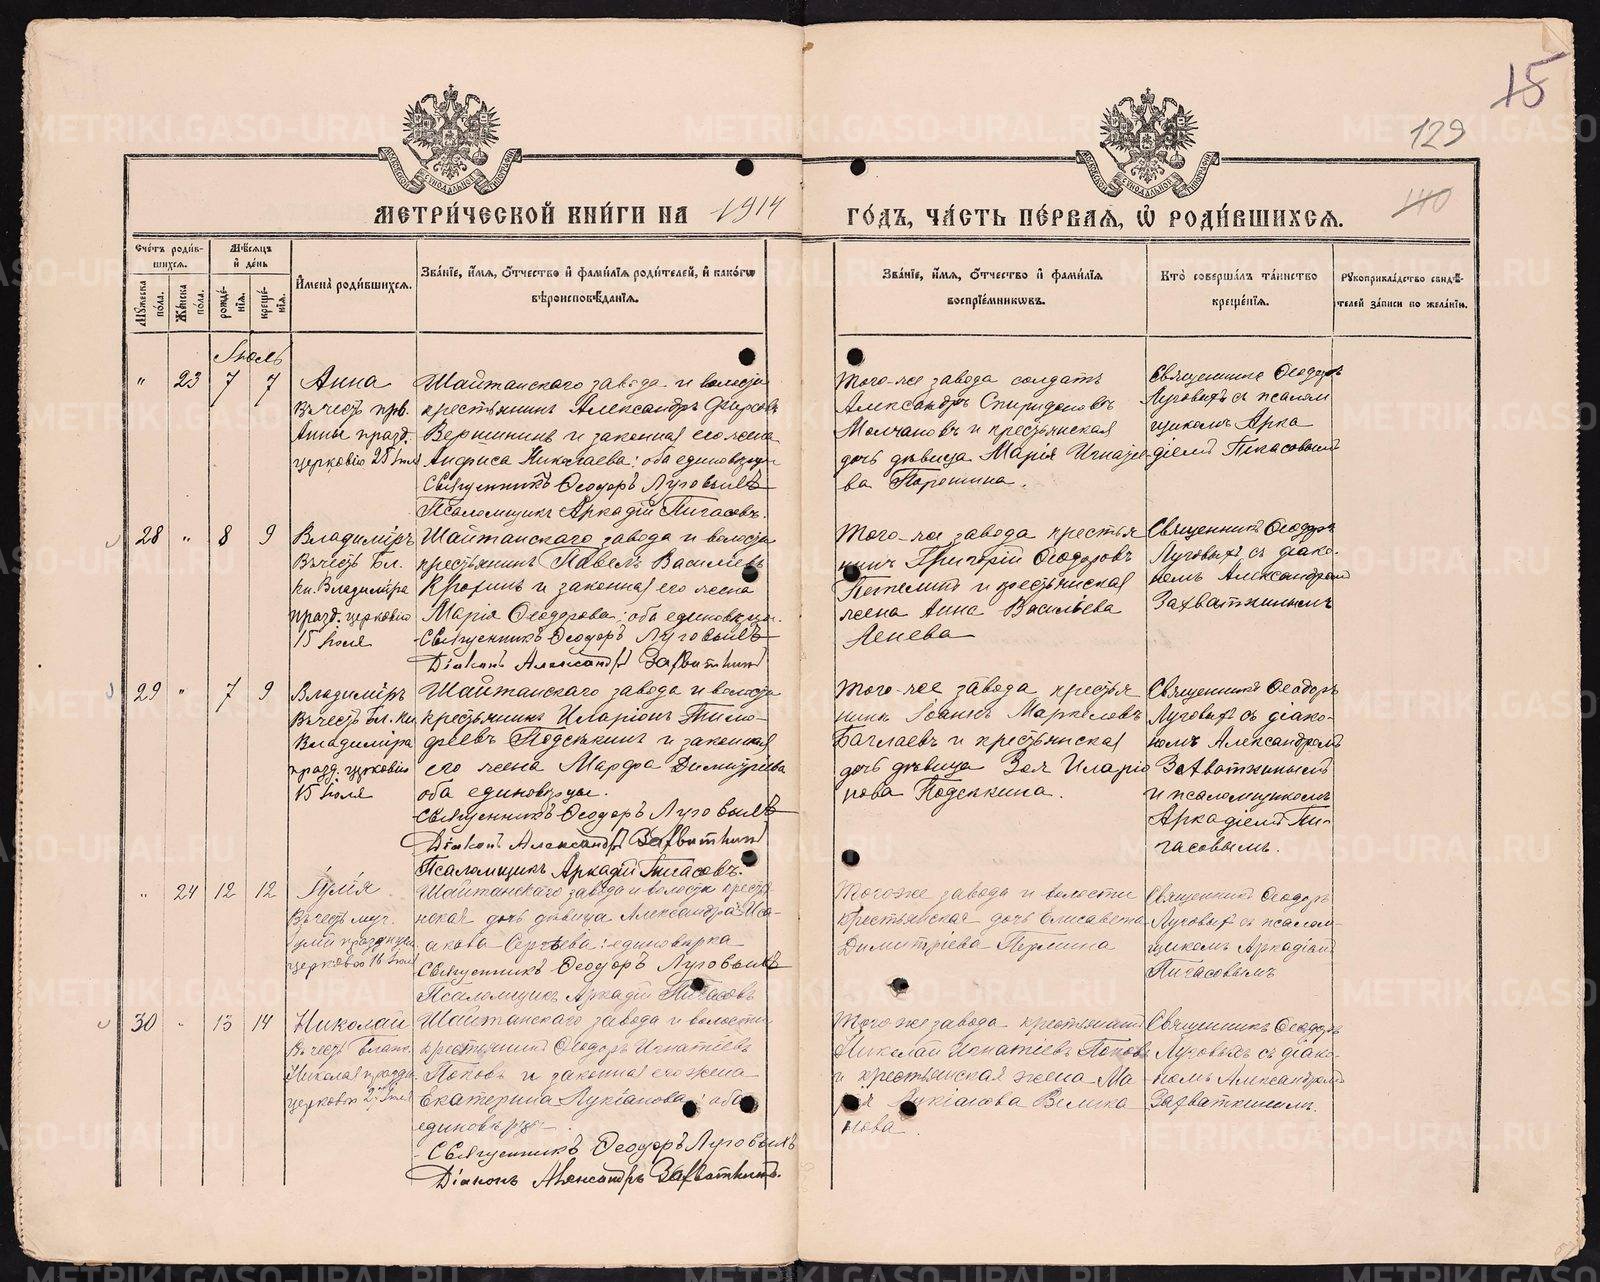 15
129
110
МЕТРИ́ЧЕСКОЙ КНИ́ГИ НА 1914 ГО́ДЪ, ЧА́СТЬ ПЕ́РВАѦ, Ѡ҆ РОДИ́ВШИХСѦ.
Сче́тъ роди́в-
шихсѧ.
Мꙋ́жеска по́ла.
Же́нска по́ла.
Мѣ́сѧцъ
и҆ де́нь
рожде́-
нїѧ.
креще́-
нїѧ.
И҆мена̀ роди́вшихсѧ.
Зва́нїе, и҆́мѧ, ѻ҆́тчество и҆ фами́лїѧ роди́телей, и҆ како́гѡ
вѣроисповѣ́данїѧ.
Зва́нїе, и҆́мѧ, ѻ҆́тчество и҆ фами́лїѧ
воспрїе́мникѡвъ.
Кто̀ соверша́лъ та́инство
креще́нїѧ.
Рꙋкоприкла́дство свидѣ́-
телей за́писи по жела́нїю.
Іюль
" 23 7 7
Анна
Въ честь прв.
Анны празд.
церковію 25 Іюля
Шайтанскаго завода и волости
крестьянинъ Александръ Фирсовъ
Вершининъ и законная его жена
Анфиса Николаева; оба единовѣрцы
Священникъ Ѳеодоръ Луговыхъ
Псаломщикъ Аркадій Пигасовъ.
Того-же завода солдатъ
Александръ Спиридоновъ
Молчановъ и крестьянская
дочь дѣвица Марія Игнатье-
ва Паршина.
Священникъ Ѳеодоръ
Луговыхъ съ псалом
щикомъ Арка
діемъ Пигасовымъ
28 " 8 9
Владиміръ
Въ честь Бл.
кн. Владиміра
празд. церковію
15 Іюля
Шайтанскаго завода и волости
крестьянинъ Павелъ Васильевъ
и законная его жена
Марія Ѳеодорова; оба единовѣрцы.
Священникъ Ѳеодоръ Луговыхъ
Діаконъ Александръ Захваткинъ
Того-же завода крестья
нинъ Григорій Ѳеодоровъ
и крестьянская
жена Анна Васильева
Священникъ Ѳеодоръ
Луговыхъ съ діако-
номъ Александромъ
Захваткинымъ
29 " 7 9
Владиміръ
Въ честь Бл. кн.
Владиміра
празд. церковію
15 Іюля
Шайтанскаго завода и волости
крестьянинъ Иларіонъ Тимо-
феевъ Подсѣкинъ и законная
его жена Марфа Димитріева
оба единовѣрцы.
Священникъ Ѳеодоръ Луговыхъ
Діаконъ Александръ Захваткинъ
Псаломщикъ Аркадій Пигасовъ.
Того-же завода крестья
нинъ Іоаннъ Маркеловъ
Баглаевъ и крестьянская
дочь дѣвица Зоя Иларіо
нова Подсѣкина.
Священникъ Ѳеодоръ
Луговыхъ съ діако-
номъ Александромъ
Захваткинымъ
и псаломщикомъ
Аркадіемъ Пи-
гасовымъ.
" 24 12 12
Іулія
Въ честь муч.
Іуліи празднуем
церковію 16 Іюля
Шайтанскаго завода и волости кресть
нская дочь дѣвица Александра Иса-
акова Сергѣева; единовѣрка
Священникъ Ѳеодоръ Луговыхъ
Псаломщикъ Аркадій Пигасовъ
Того же завода и волости
крестьянская дочь Елисавета
Димитріева Пермина
Священникъ Ѳеодоръ
Луговыхъ съ псалом-
щикомъ Аркадіемъ
Пигасовымъ
30 " 13 14
Николай
Въ честь Блаж.
Николая праздн.
церковію 27 Іюля
Шайтанскаго завода и волости
крестьянинъ Ѳеодоръ Игнатіевъ
Поповъ и законная его жена
Екатерина Лукіанова; оба
единовѣрцы.
Священникъ Ѳеодоръ Луговыхъ
Діаконъ Александръ Захваткинъ.
Того же завода крестьянинъ
Николай Игнатіевъ Поповъ
и крестьянская жена Ма
рія Лукіанова Велика
нова.
Священникъ Ѳеодоръ
Луговыхъ съ діако-
номъ Александромъ
Захваткинымъ.
METRIKI.GASO-URAL.RU